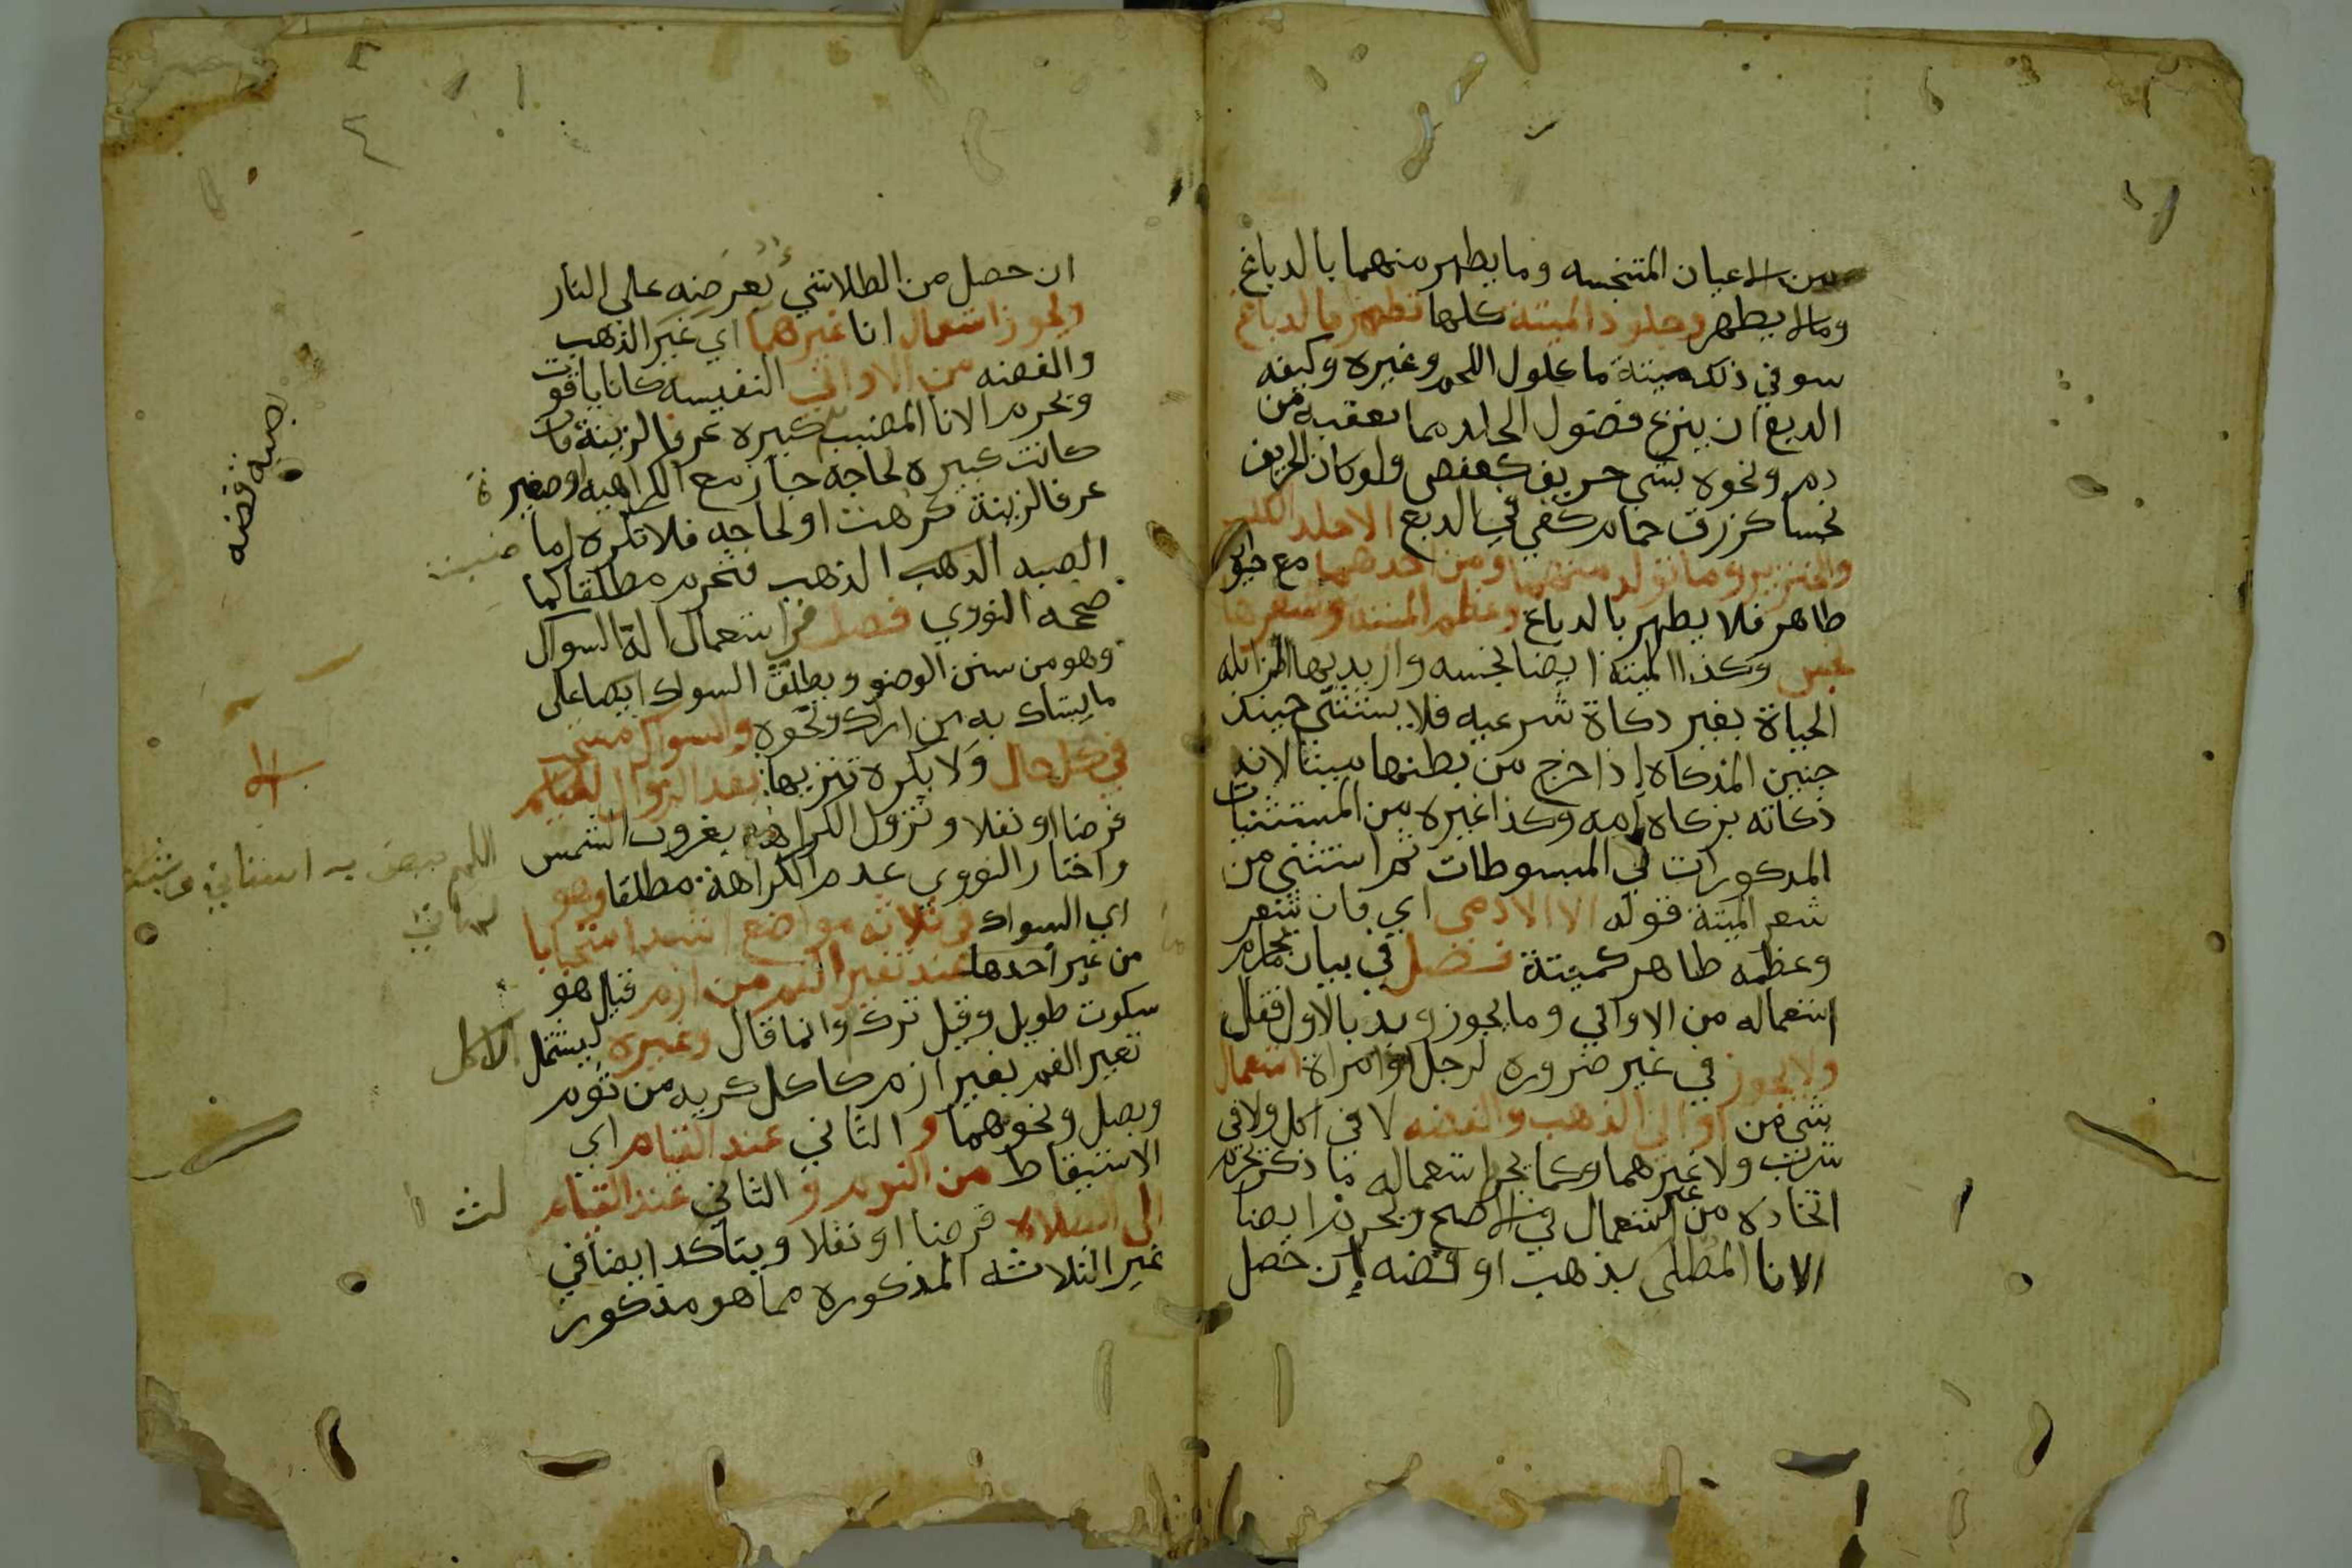 من الاعيان المتنجسه وما يطهر منهما بالدباغ
وما لا يطهر وجلود الميتة كلها تطهر بالدباغ
سو في ذلك ميتة ماكلول اللحم وغيره وكيفه
الدبغ ان ينزع فضول الجلد مما يعفنه من
دم ونحوه بشي حريف كعفص ولو كان الحريف
نجسا كزرق حمام كفي في الدبغ الا جلد الكلب
والخنزير وما تولد منهما او من احدهما مع حيوان
طاهر فلا يطهر بالدباغ وعظم الميتة وشعرها
نجس وكذا الميتة ايضا نجسه واريد بها الزائله
الحياة بغير ذكاة شرعيه فلا يستثني حينئذ
جنين المذكاه اذا خرج من بطنها ميتا لان
ذكاته بزكاه امه وكذا غيره من المستثنيات
المذكورات في المبسوطات ثم استثني من
شعر الميتة قوله الا الادمي اي فان شعر
وعظمه طاهر كميتة فصل في بيان ما يحرم
استعماله من الاواني وما يجوز وبد بالاول فقال
ولا يجوز في غير ضروره لرجل او امراة استعمال
شي من اواني الذهب والفضه لا في اكل ولا في
شرب ولا غيرهما وكما يحرم استعماله ما ذكر يحرم
اتخاذه من غير استعمال في الاصح ويحرم ايضا
الانا المطلي بذهب او فضه إن حصل
ان حصل من الطلا شي بعرضه على النار
ويجوز استعمال انا غيرهما اي غير الذهب
والفضه من الاواني النفيسه كانا ياقوت
ويحرم الانا المضبب كبيره عرفا لزينة فان
كانت كبيره لحاجه جاز مع الكراهيه او صغيرة
عرفا لزينة كرهت او لحاجه فلا تكره اما ضبة
الصبه الذهب الذهب فتحرم مطلقا كما
صححه النووي فصل في استعمال الة السواك
وهو من سنن الوضو ويطلق السواك ايضا على
ما يستاك به من اراك ونحوه والسواك مستحب
في كل حال ولا يكره تنزيها بعد الزوال للصايم
فرضا او نفلا وتزول الكراهه بغروب الشمس
واختار النووي عدم الكراهة مطلقا وهو
اي السواك في ثلاثه مواضع اشد استحبابا
من غير احدها عند تغير الفم من ازم قيل هو
سكوت طويل وقيل ترك وانما قال وغيره ليشمل الاكل
تغير الفم بغير ازم كاكل كريه من ثوم
وبصل ونحوهما و الثاني عند القيام اي
الاستيقاظ من النوم و الثاني عند القيام لث
الى الصلاه فرضا او نفلا ويتاكد ايضا في
غير الثلاثه المذكوره مما هو مذكور
ضبه فضه
اللهم بيض به اسناني وشد
لثاتي